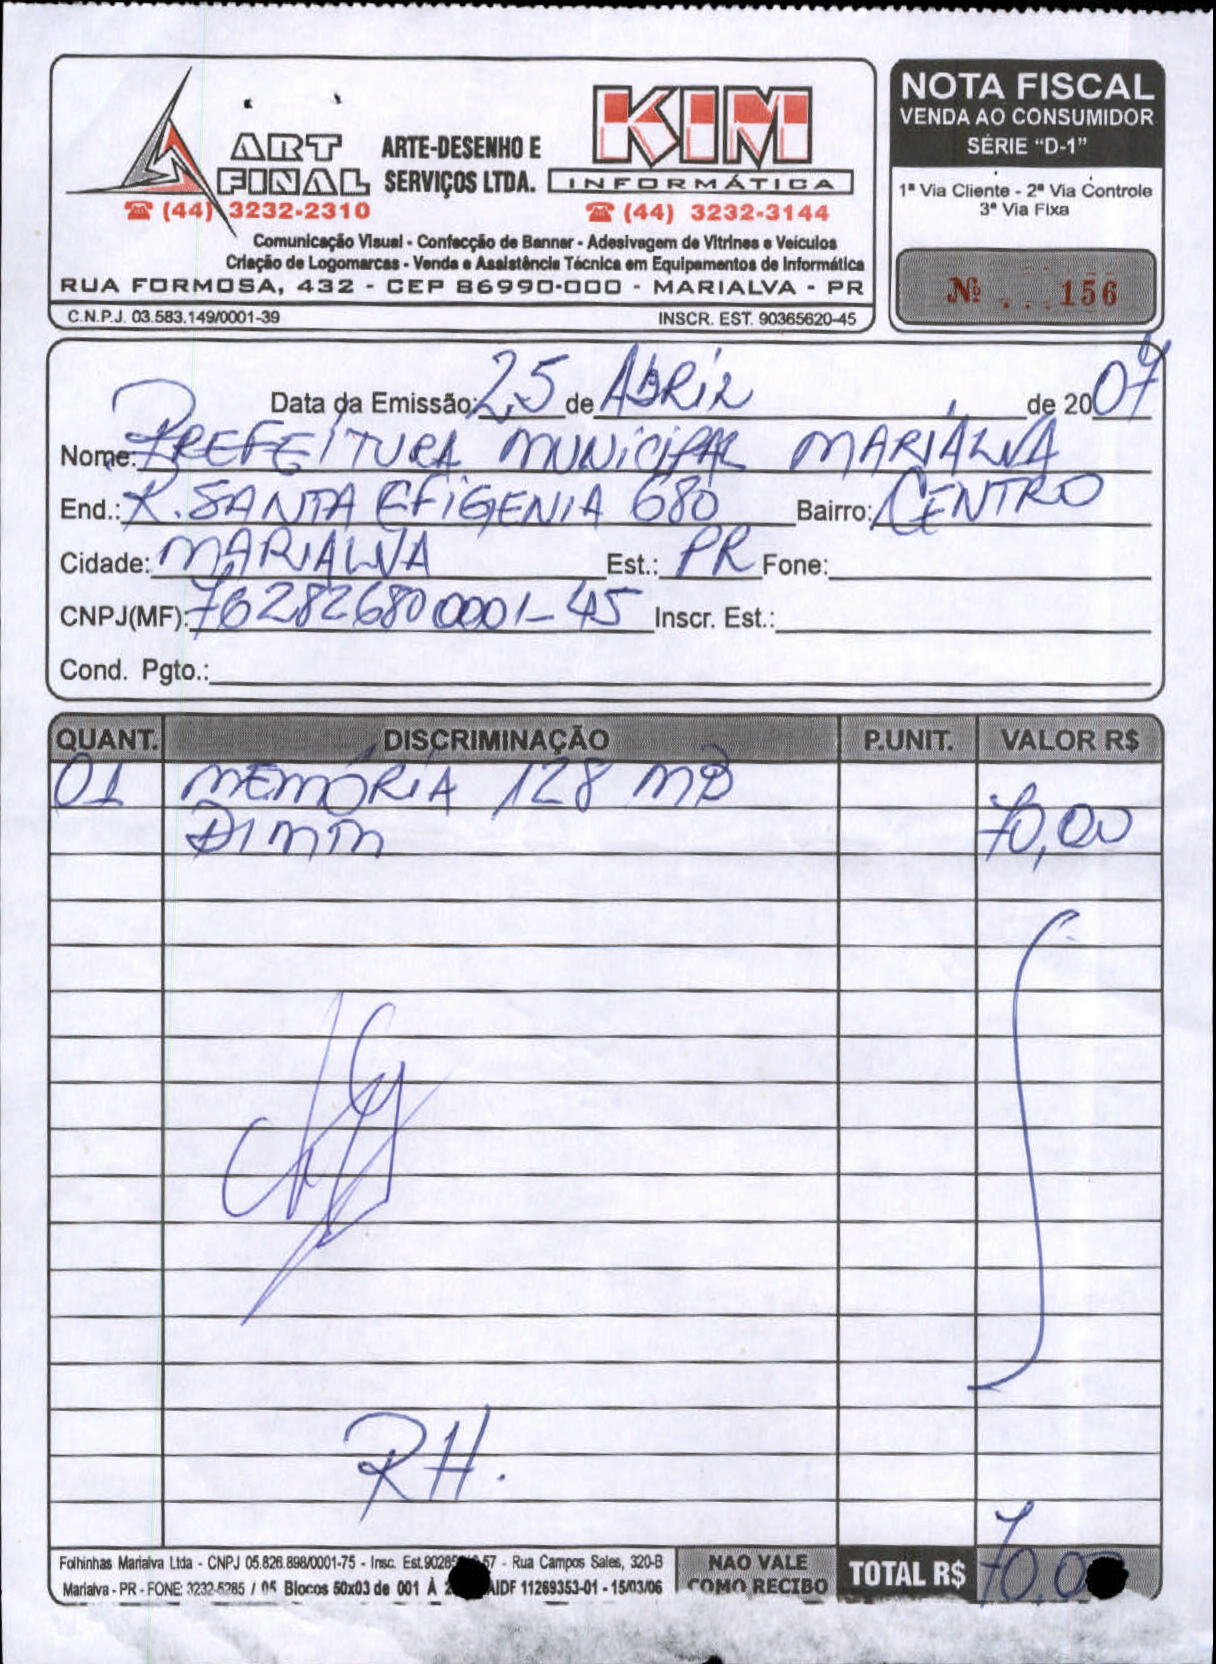 ART FINAL
ARTE-DESENHO E SERVIÇOS LTDA.
KIM INFORMÁTICA
☎ (44) 3232-2310
☎ (44) 3232-3144
Comunicação Visual - Confecção de Banner - Adesivagem de Vitrines e Veículos
Criação de Logomarcas - Venda e Assistência Técnica em Equipamentos de Informática
RUA FORMOSA, 432 - CEP 86990-000 - MARIALVA - PR
C.N.P.J. 03.583.149/0001-39 INSCR. EST. 90365620-45
NOTA FISCAL
VENDA AO CONSUMIDOR
SÉRIE "D-1"
1ª Via Cliente - 2ª Via Controle
3ª Via Fixa
Nº 156
Data da Emissão: 25 de ABRIL de 2007
Nome: PREFEITURA MUNICIPAL MARIALVA
End.: R. SANTA EFIGENIA 680 Bairro: CENTRO
Cidade: MARIALVA Est.: PR Fone:
CNPJ(MF): 762826800001-45 Inscr. Est.:
Cond. Pgto.:
QUANT. DISCRIMINAÇÃO P.UNIT. VALOR R$
01 MEMÓRIA 128 MB
DIMM 70,00
RH.
Folhinhas Marialva Ltda - CNPJ 05.826.898/0001-75 - Insc. Est. 57 - Rua Campos Sales, 320-B
Marialva - PR - FONE: 3232-5285 / 05 Blocos 50x03 de 001 À AIDF 11269353-01 - 15/03/06
NAO VALE
COMO RECIBO
TOTAL R$ 70,0